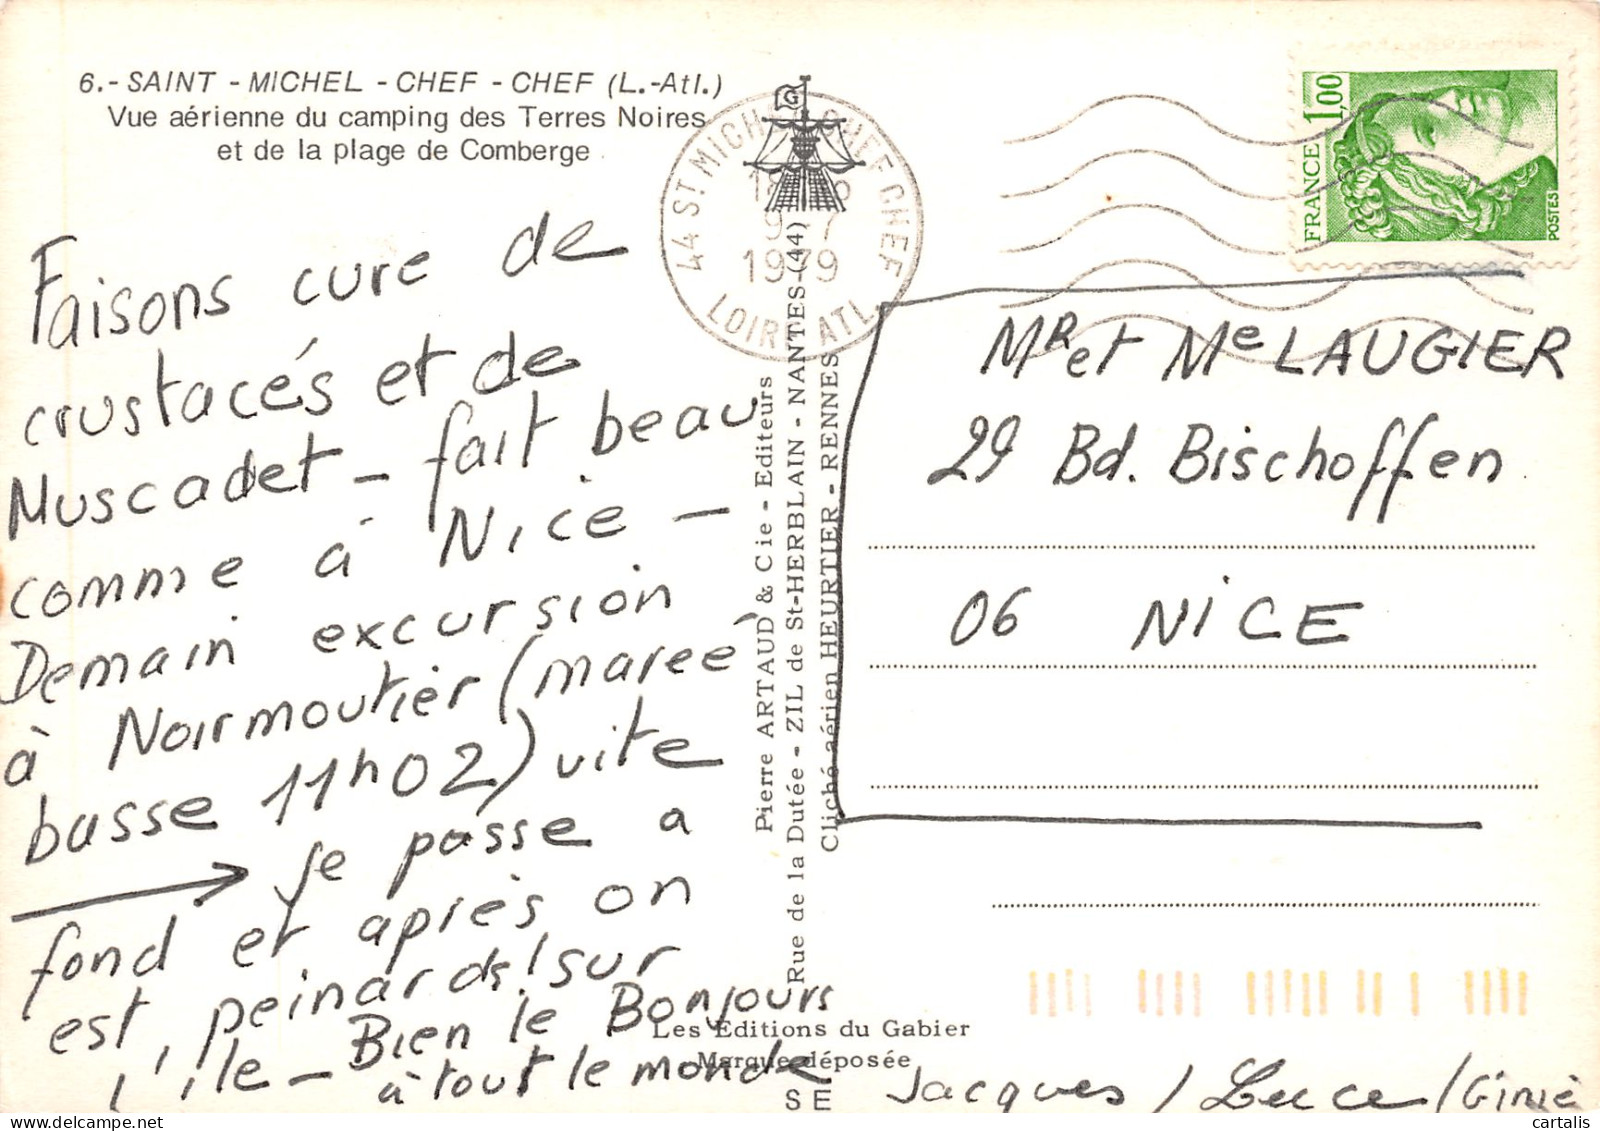 6.- SAINT - MICHEL - CHEF - CHEF (L.-Atl.)
Vue aérienne du camping des Terres Noires
et de la plage de Comberge
Faisons cure de
crustacés et de
Muscadet - fait beau
comme à Nice -
Demain excursion
à Noirmoutier (mareé
basse 11h02) vite
→ je passe a
fond et après on
est, peinards! sur
l'île - Bien le Bonjours
à tout le monde
G
44 ST MICHEL CHEF CHEF
18
9-7
1979
LOIRE ATL.
Pierre ARTAUD & Cie - Editeurs
Rue de la Dutée - ZIL de St-HERBLAIN - NANTES (44)
Cliché aérien HEURTIER - RENNES
Les Editions du Gabier
Marque déposée
SE
FRANCE 1,00
POSTES
MR et Me LAUGIER
29 Bd. Bischoffen
06 NICE
Jacques / Lucce / Ginie
cartalis